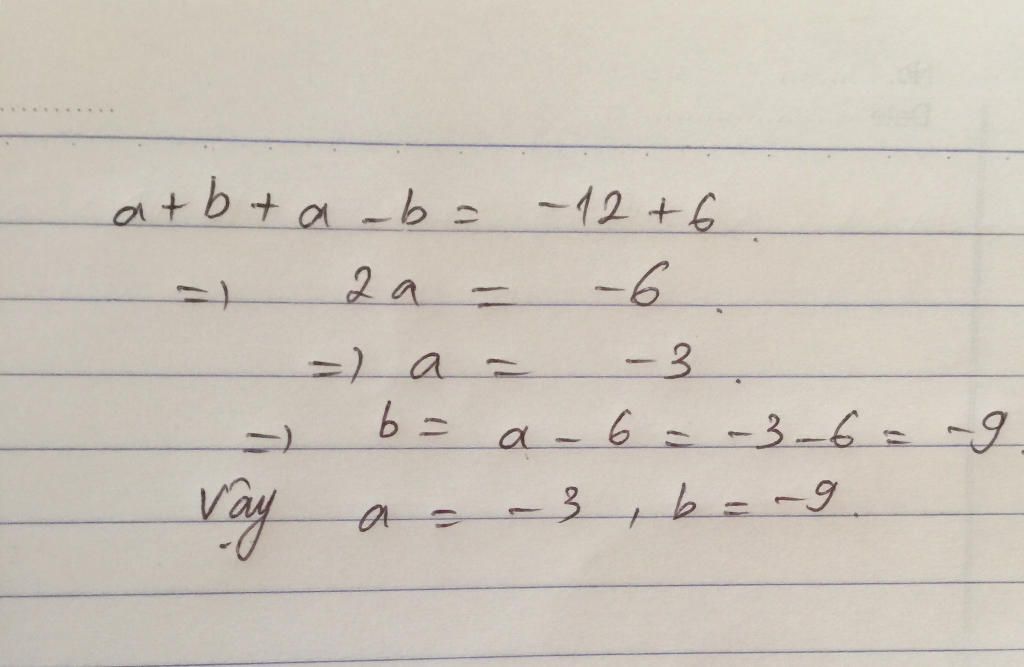 a + b + a - b = -12 + 6.
=> 2a = -6.
=> a = -3.
=> b = a - 6 = -3 - 6 = -9.
Vậy a = -3, b = -9.